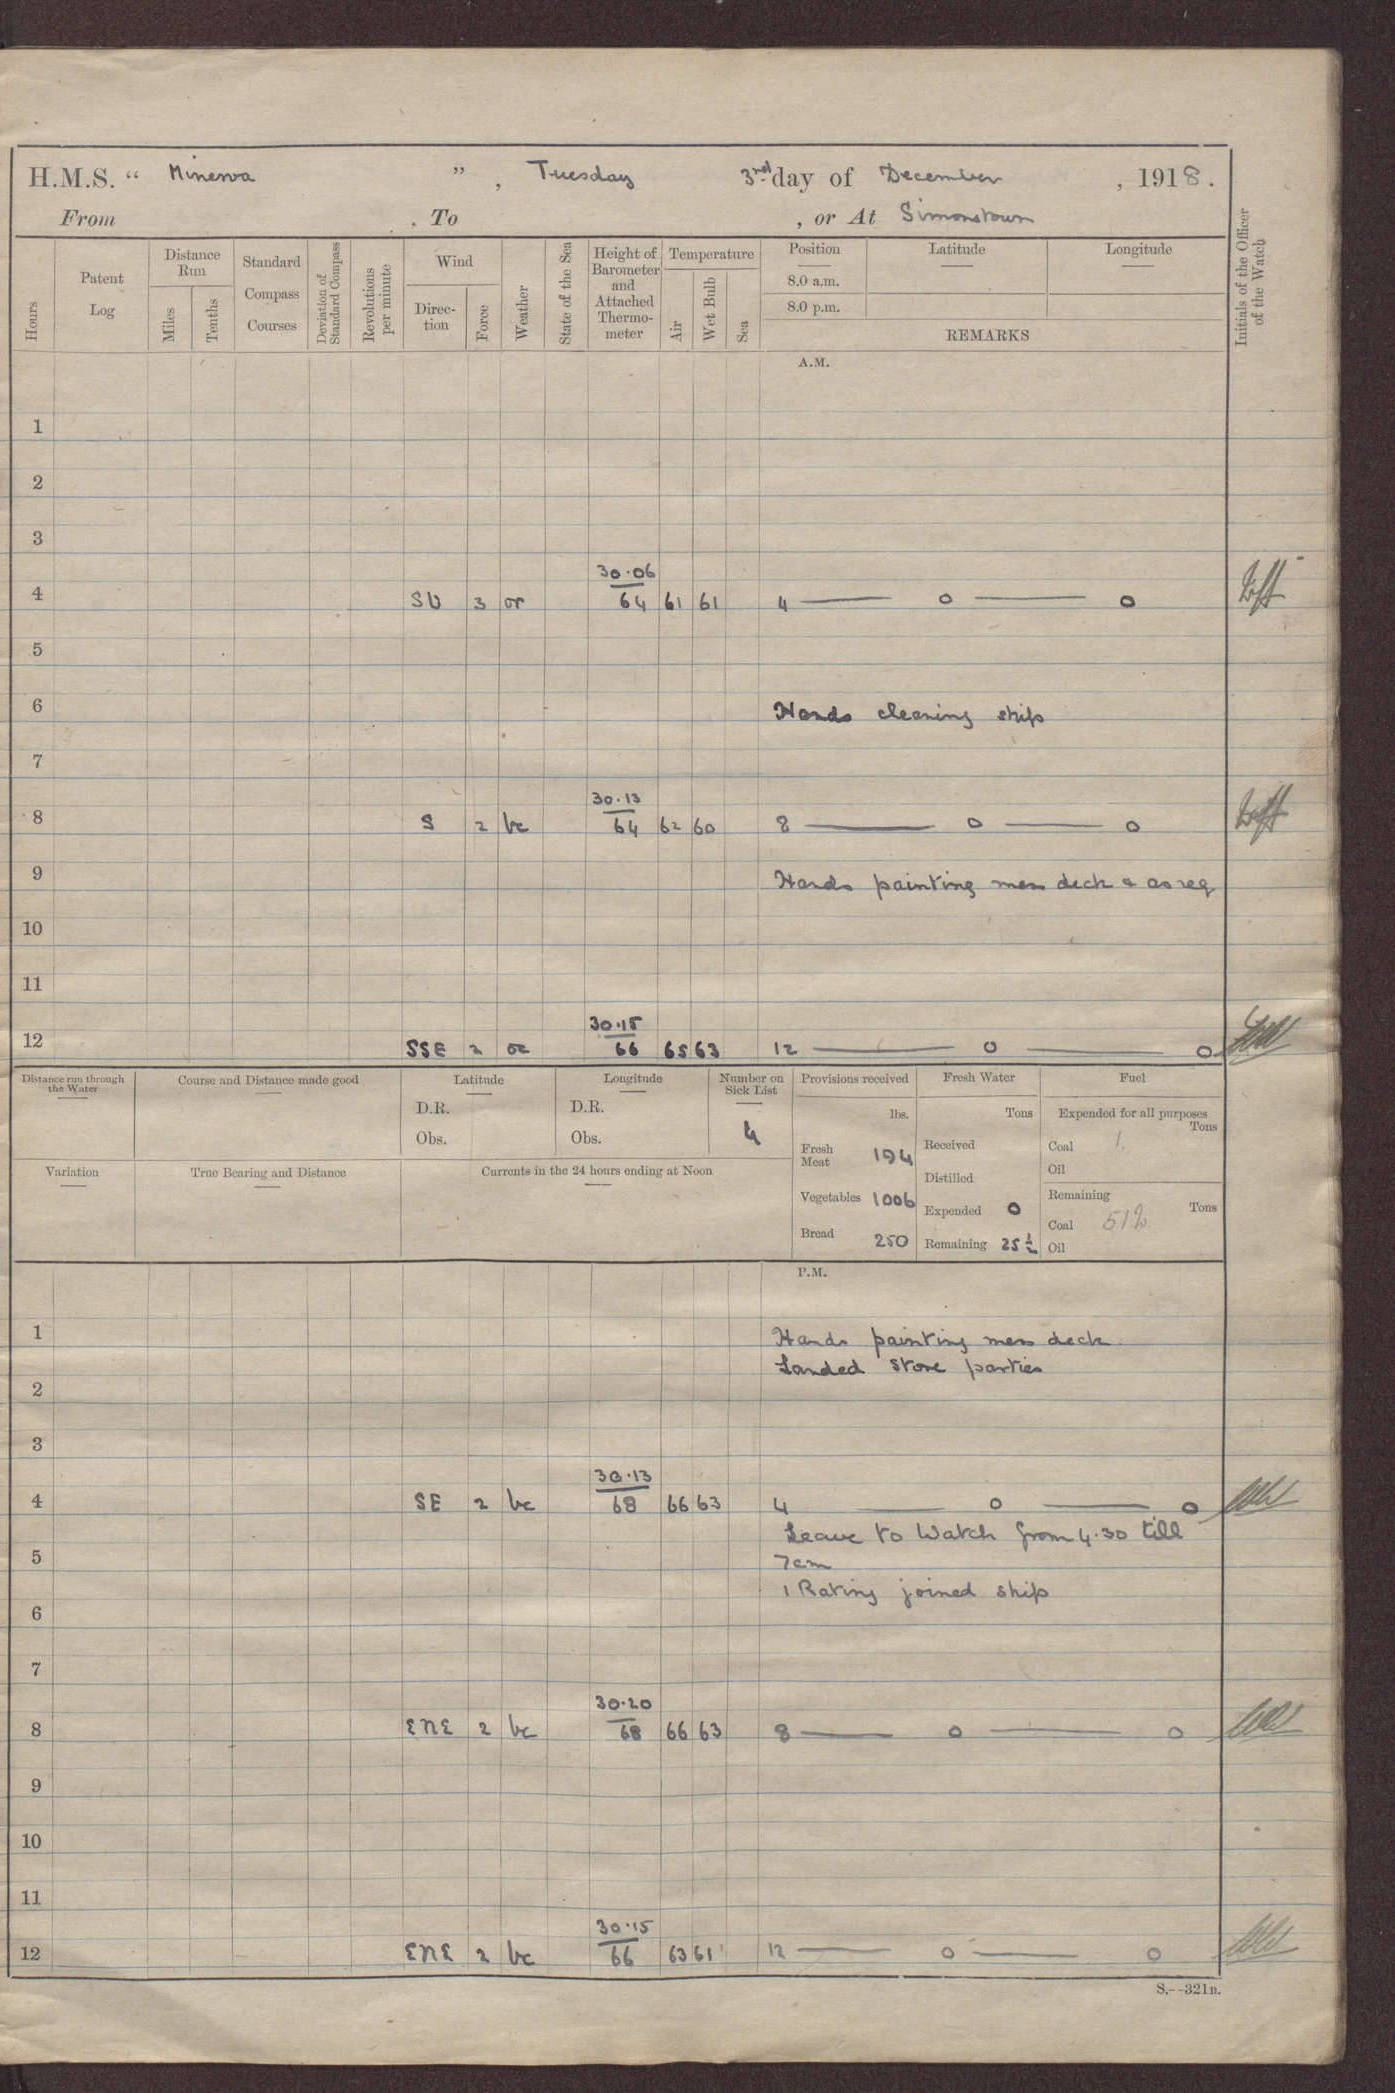 H.M.S. “ Minerva ” , Tuesday 3rd day of December , 1918 .
From . To , or At Simonstown
Hours
Patent Log
Distance Run
Miles
Tenths
Standard Compass Courses
Deviation of Standard Compass
Revolutions per minute
Wind
Direc-tion
Force
Weather
State of the Sea
Height of Barometer and Attached Thermo-meter
Temperature
Air
Wet Bulb
Sea
Position
8.0 a.m.
8.0 p.m.
Latitude
Longitude
REMARKS
Initials of the Officer of the Watch
A.M.
1
2
3
30·06
4 SW 3 or 64 61 61 4 — o — o
5
6 Hands cleaning ship
7
30·13
8 S 2 bc 64 62 60 8 — o — o
9 Hands painting mess deck & as req
10
11
30·15
12 SSE 2 oc 66 65 63 12 — o — o
Distance run through the Water
Course and Distance made good
Latitude
D.R.
Obs.
Longitude
D.R.
Obs.
Number on Sick List
4
Provisions received
lbs.
Fresh Meat 194
Vegetables 1006
Bread 250
Fresh Water
Tons
Received
Distilled
Expended 0
Remaining 25½
Fuel
Expended for all purposes
Tons
Coal 1.
Oil
Remaining
Tons
Coal 512
Oil
Variation
True Bearing and Distance
Currents in the 24 hours ending at Noon
P.M.
1 Hands painting mess deck
Landed store parties
2
3
30·13
4 SE 2 bc 68 66 63 4 — o — o
Leave to Watch from 4·30 till
5 7am
1 Rating joined ship
6
7
30·20
8 ENE 2 bc 68 66 63 8 — o — o
9
10
11
30·15
12 ENE 2 bc 66 63 61 12 — o — o
S.--321B.